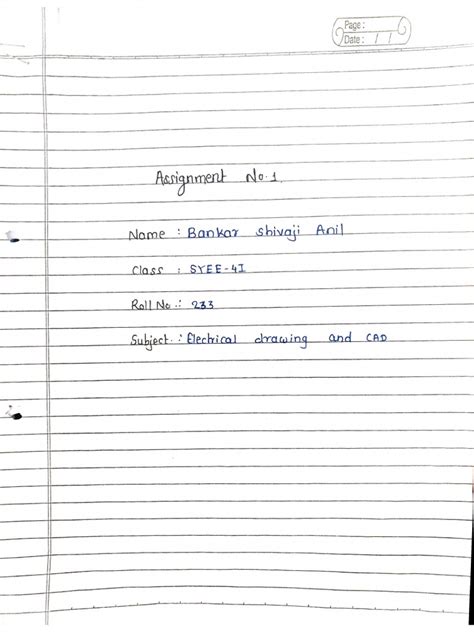 Page :
Date : / /
Assignment No. 1.
Name : Bankar Shivaji Anil
Class : SYEE-4I
Roll No. : 233
Subject. : Electrical drawing and CAD